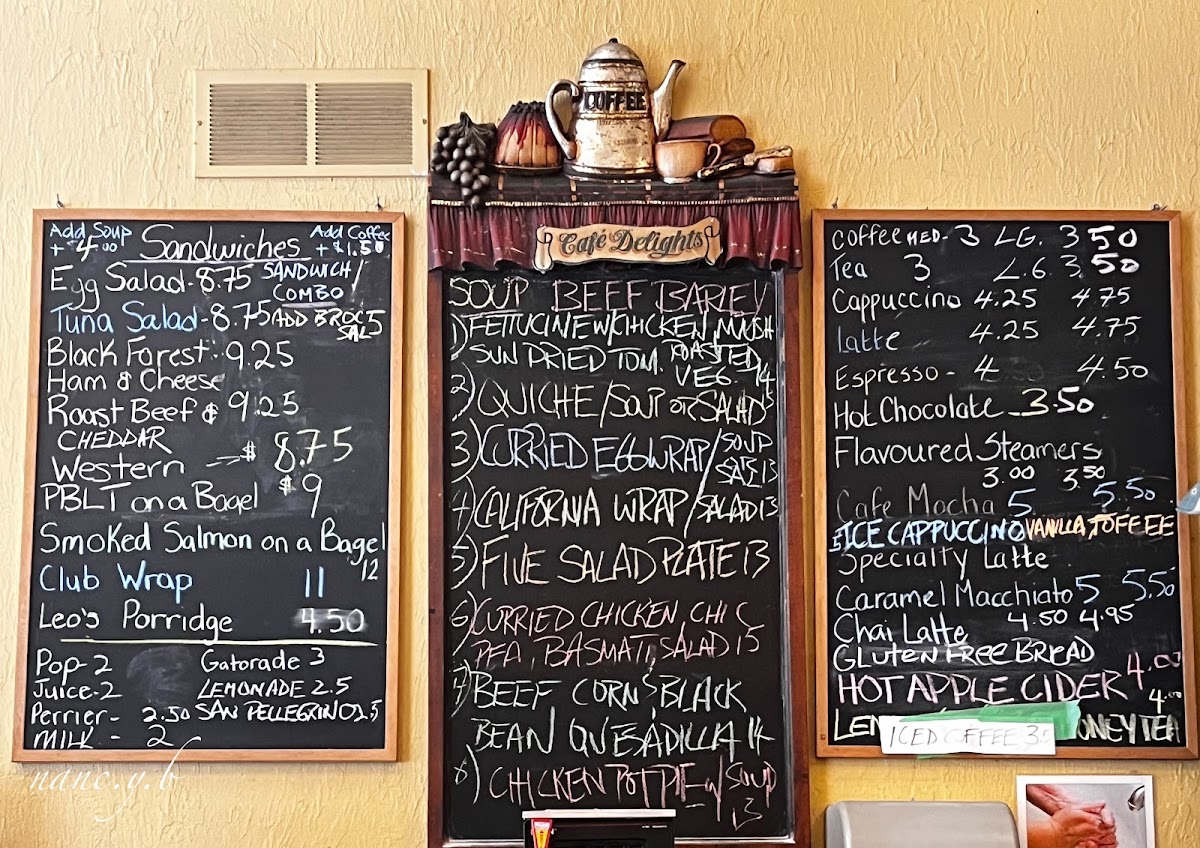 COFFEE
Café Delights
Add Soup
+ $4.00
Sandwiches
Add Coffee
+ $1.50
Egg Salad - 8.75
SANDWICH/
COMBO
Tuna Salad - 8.75
ADD BROC
SAL 5
Black Forest - 9.25
Ham & Cheese
Roast Beef & 9.25
CHEDDAR
Western $ 8.75
PBLT on a Bagel $ 9
Smoked Salmon on a Bagel
12
Club Wrap 11
Leo's Porridge 4.50
Pop - 2 Gatorade 3
Juice - 2 LEMONADE 2.5
Perrier - 2.50 SAN PELLEGRINO 2.5
MILK - 2
nanc.y.b
SOUP BEEF BARLEY
1) FETTUCINE W/CHICKEN, MUSH
SUN DRIED TOM. ROASTED
VEG 14
2) QUICHE/SOUP OR SALAD
3) CURRIED EGG WRAP/SOUP
13
4) CALIFORNIA WRAP/SALAD 13
5) FIVE SALAD PLATE 13
6) CURRIED CHICKEN, CHIC
PEA, BASMATI, SALAD 15
7) BEEF CORN & BLACK
BEAN QUESADILLA 14
8) CHICKEN POT PIE w/ SOUP
13
coffee MED - 3 LG. 3.50
Tea 3 L.G. 3.50
Cappuccino 4.25 4.75
Latte 4.25 4.75
Espresso - 4 4.50
Hot Chocolate - 3.50
Flavoured Steamers
3.00 3.50
Cafe Mocha 5 5.50
ICE CAPPUCCINO VANILLA, TOFFEE
Specialty Latte
Caramel Macchiato 5 5.50
Chai Latte 4.50 4.95
GLUTEN FREE BREAD
HOT APPLE CIDER 4.00
4.00
ICED COFFEE 3